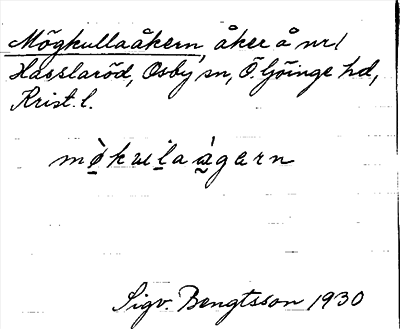 Mögkullaåkern, åker å nr 1
Hasslaröd, Osby sn, Ö. Göinge hd,
Krist. l.
mò̱kuḻaà̰gærn
Sigv. Bengtsson 1930